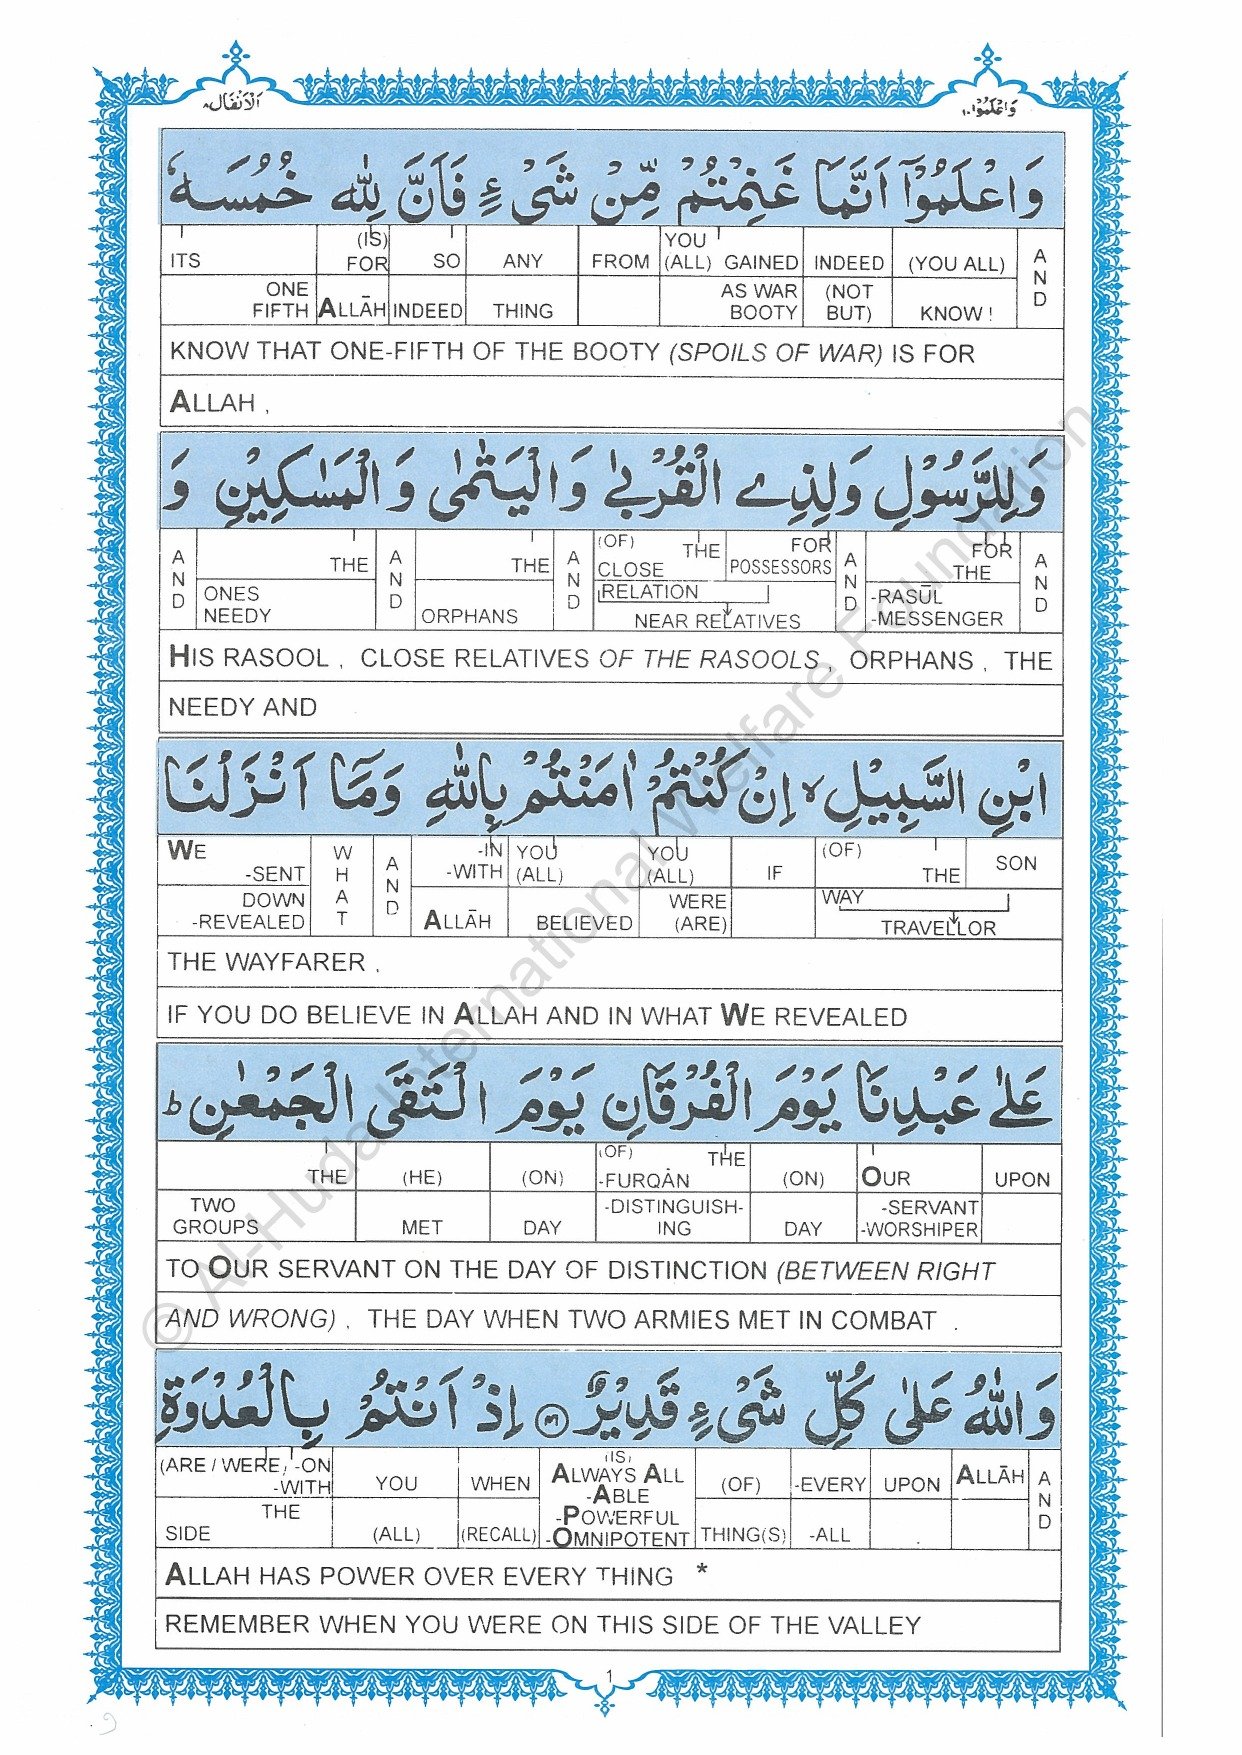 وَاعْلَمُوْا ۱۰
اَلْاَنْفَال ۸
وَاعْلَمُوْۤا اَنَّمَا غَنِمْتُمْ مِّنْ شَیْءٍ فَاَنَّ لِلّٰهِ خُمُسَهٗ
ITS (IS) FOR SO ANY FROM YOU (ALL) GAINED INDEED (YOU ALL) AND
ONE FIFTH ALLĀH INDEED THING AS WAR BOOTY (NOT BUT) KNOW !
KNOW THAT ONE-FIFTH OF THE BOOTY (SPOILS OF WAR) IS FOR
ALLAH ,
وَلِلرَّسُوْلِ وَلِذِی الْقُرْبٰی وَالْیَتٰمٰی وَالْمَسٰكِیْنِ وَ
AND THE AND THE AND (OF) CLOSE THE FOR POSSESSORS AND FOR THE AND
ONES NEEDY ORPHANS RELATION NEAR RELATIVES -RASŪL -MESSENGER
HIS RASOOL , CLOSE RELATIVES OF THE RASOOLS , ORPHANS , THE
NEEDY AND
ابْنِ السَّبِیْلِ ۙ اِنْ كُنْتُمْ اٰمَنْتُمْ بِاللّٰهِ وَمَاۤ اَنْزَلْنَا
WE -SENT WHAT AND -IN -WITH YOU (ALL) YOU (ALL) IF (OF) THE SON
DOWN -REVEALED ALLĀH BELIEVED WERE (ARE) WAY TRAVELLOR
THE WAYFARER ,
IF YOU DO BELIEVE IN ALLAH AND IN WHAT WE REVEALED
عَلٰی عَبْدِنَا یَوْمَ الْفُرْقَانِ یَوْمَ الْتَقَی الْجَمْعٰنِ ؕ
THE (HE) (ON) (OF) THE -FURQĀN (ON) OUR UPON
TWO GROUPS MET DAY -DISTINGUISH-ING DAY -SERVANT -WORSHIPER
TO OUR SERVANT ON THE DAY OF DISTINCTION (BETWEEN RIGHT
AND WRONG) , THE DAY WHEN TWO ARMIES MET IN COMBAT .
وَاللّٰهُ عَلٰی كُلِّ شَیْءٍ قَدِیْرٌ ۴۱ اِذْ اَنْتُمْ بِالْعُدْوَةِ
(ARE / WERE) -ON -WITH YOU WHEN (IS) ALWAYS ALL -ABLE (OF) -EVERY UPON ALLĀH AND
THE SIDE (ALL) (RECALL) -POWERFUL -OMNIPOTENT THING(S) -ALL
ALLAH HAS POWER OVER EVERY THING *
REMEMBER WHEN YOU WERE ON THIS SIDE OF THE VALLEY
1
© Al-Huda International Welfare Foundation